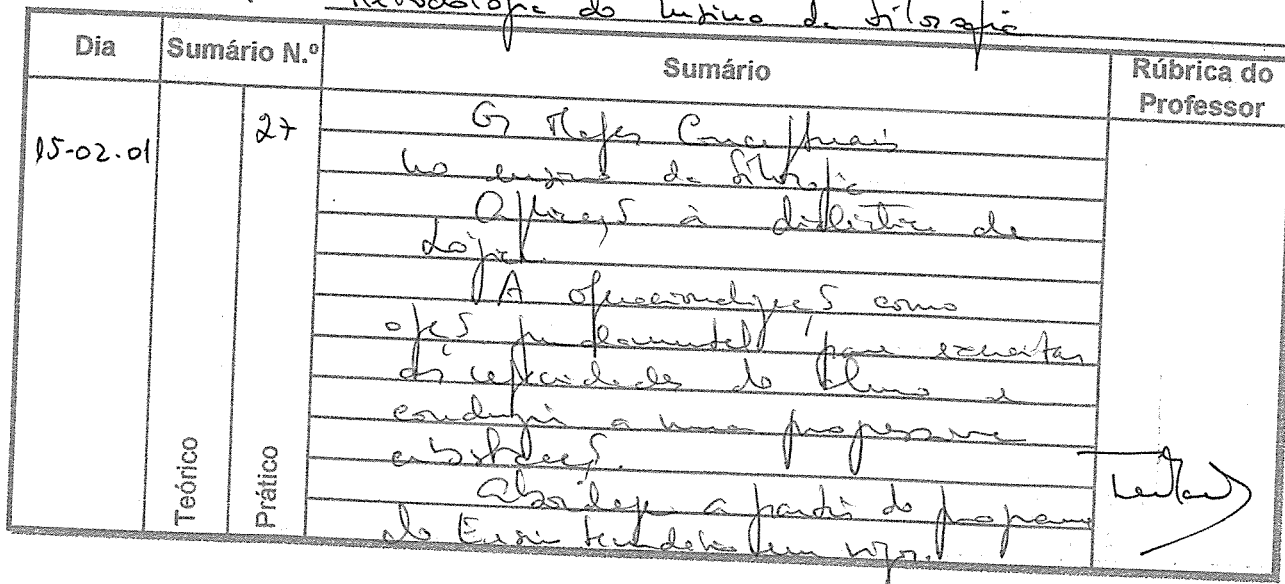 Metodologia do Ensino da Filosofia
Dia
Sumário N.º
Sumário
Rúbrica do
Professor
15-02.01
27
Teórico
Prático
Os Mapas Conceptuais
no ensino da Filosofia
Aplicação à didáctica da
Lógica.
A operacionalização como
fundamental para exercitar
as capacidades do aluno e
conduzir a uma progressiva
abstracção.
Abordagem a partir do programa
do Ensino Secundário em vigor.